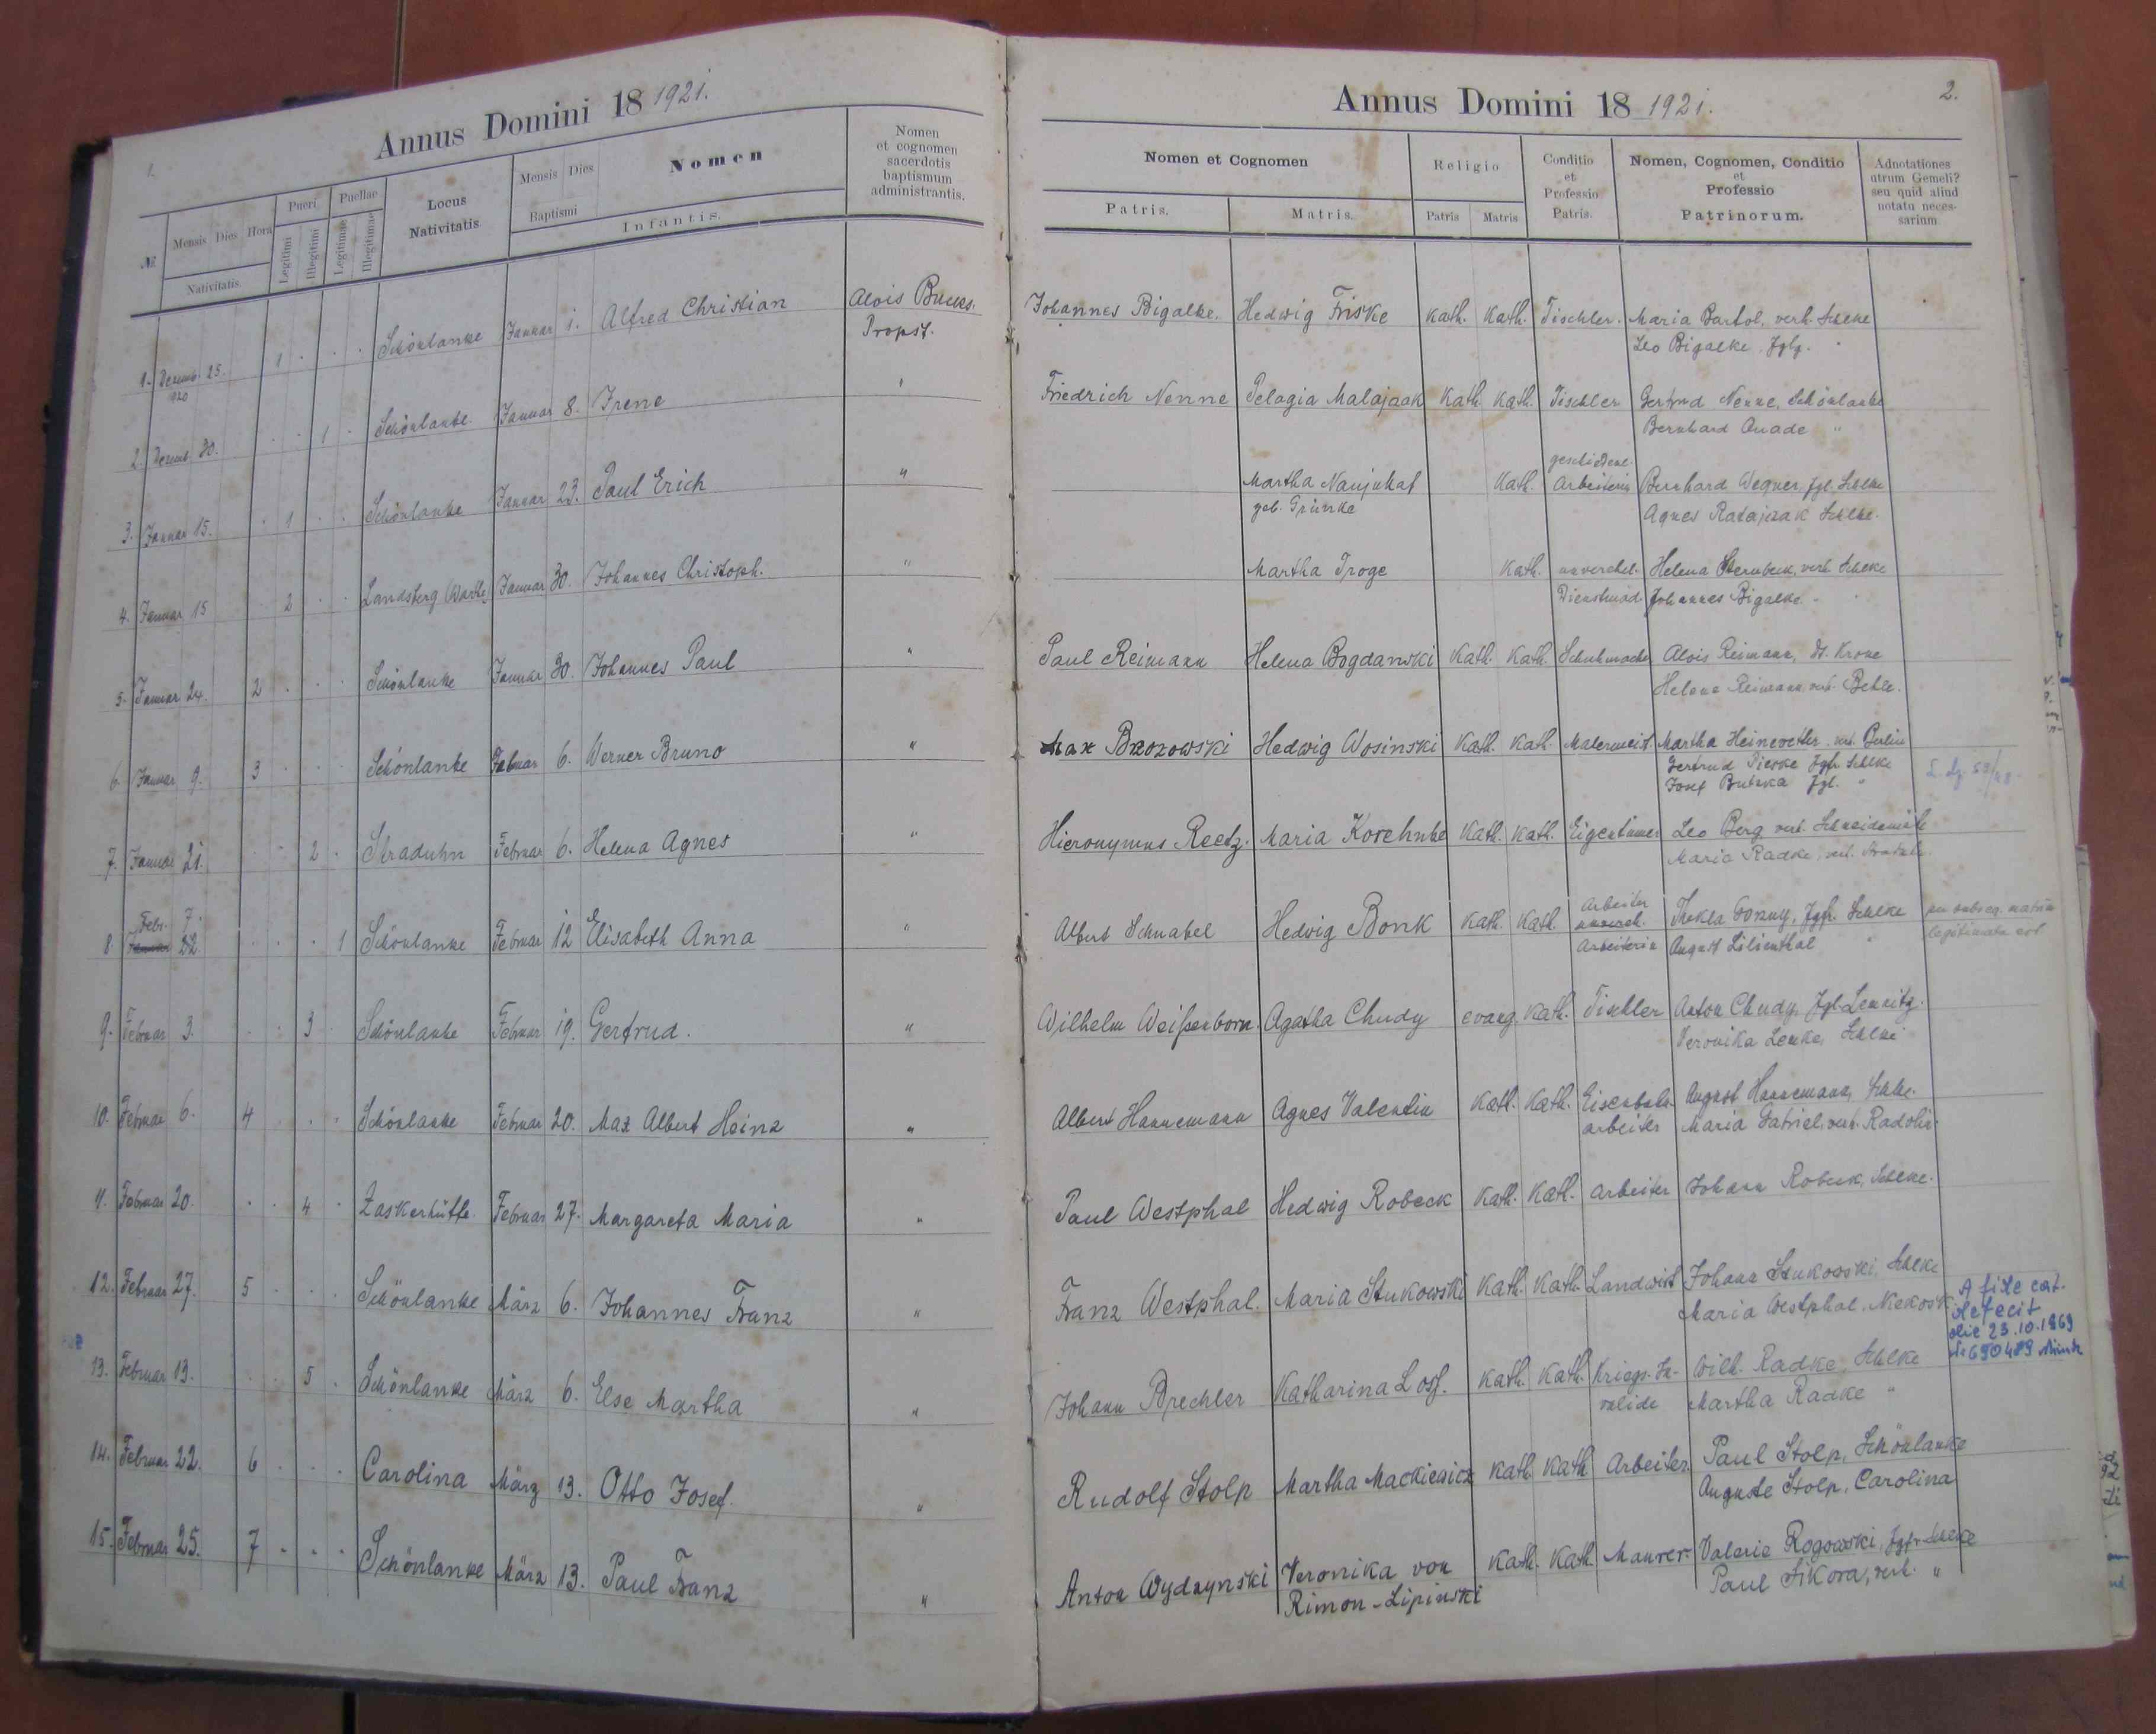 1.
Annus Domini 18 1921.
№
Mensis Dies Hora
Nativitatis.
Pueri
Legitimi
Illegitimi
Puellae
Legitimae
Illegitimae
Locus
Nativitatis
Mensis Dies
Baptismi
Nomen
Infantis.
Nomen
et cognomen
sacerdotis
baptismum
administrantis.
1. Dezemb. 25. 1 . . . Schönlanke Januar 1. Alfred Christian Alois Buchs.
920 Propst.
2. Dezemb 30. . . 1 . Schönlanke Januar 8. Irene "
3. Januar 15. . 1 . . Schönlanke Januar 23. Paul Erich "
4. Januar 15 . 2 . . Landsberg (Warthe) Januar 30. Johannes Christoph. "
5. Januar 24. 2 . . . Schönlanke Januar 30. Johannes Paul "
6. Januar 9. 3 . . . Schönlanke Februar 6. Werner Bruno "
7. Januar 21. . . 2 . Straduhn Februar 6. Helena Agnes "
Febr. 7.
8. Januar 22. . . . 1 Schönlanke Februar 12 Elisabeth Anna "
9. Februar 3. . . 3 Schönlanke Februar 19. Gertrud. "
10. Februar 6. 4 . . . Schönlanke Februar 20. Max Albert Heinz "
11. Februar 20. . . 4 . Zaskerhütte Februar 27. Margareta Maria "
12. Februar 27. 5 . . . Schönlanke März 6. Johannes Franz "
13. Februar 13. . . 5 . Schönlanke März 6. Else Martha "
14. Februar 22. 6 . . . Carolina März 13. Otto Josef. "
15. Februar 25. 7 . . . Schönlanke März 13. Paul Franz "
Annus Domini 18 1921.
2.
Nomen et Cognomen
Patris. Matris.
Religio
Patris Matris
Conditio
et
Professio
Patris.
Nomen, Cognomen, Conditio
et
Professio
Patrinorum.
Adnotationes
utrum Gemeli?
seu quid aliud
notatu neces-
sarium
Johannes Bigalke. Hedwig Friske kath. kath. Tischler. Maria Bartol, verh. Schlke
Leo Bigalke, Jglg. "
Friedrich Nenne Pelagia Malajaak kath. kath. Tischler Gertrud Nenne, Schönlanke
Bernhard Quade "
geschiedene
Martha Naujokat kath. Arbeiterin Bernhard Wegner, Jgl. Schlke
geb. Grünke Agnes Ratajzak Schlke.
Martha Troge kath. unverehel. Helena Sternbeck, verh. Schlke
Dienstmäd. Johannes Bigalke "
Paul Reimann Helena Bogdanski kath. kath. Schuhmacher Alois Reimann, Dt. Krone
Helene Reimann, verh. Behle.
Max Brzozowski Hedwig Wosinski kath. kath. Malermeist. Martha Heinevetter verh. Berlin
Gertrud Pieske Jgfr. Schlke
Josef Butzka Jgl. "
Hieronymus Reetz. Maria Koschnke kath. kath. Eigentümer Leo Berg verh. Schneidemühl
Maria Radke, verh.
Arbeiter
Albert Schnabel Hedwig Bonk kath. kath. unverh. Thekla Gorzny, Jgfr. Schlke per subseq. matrim
Arbeiterin August Lilienthal " legitimata est
Wilhelm Weißenborn. Agatha Chudy evang. kath. Tischler Anton Chudy, Jgl. Lemnitz.
Veronika Lenke, Schlke
Albert Hannemann Agnes Valentin kath. kath. Eisenbahn- August Hannemann, Schlke.
arbeiter Maria Gabriel, verh. Radolin.
Paul Westphal Hedwig Robeck kath. kath. Arbeiter Johann Robeck, Schlke.
Franz Westphal. Maria Stukowski kath. kath. Landwirt Johann Stukowski, Schlke
Maria Westphal, Niekosk.
A fide cat.
defecit
die 23.10.1969
№ 690489
Johann Brechler Katharina Loss. kath. kath. Kriegs-In- Wilh. Radke, Schlke
valide Martha Radke "
Rudolf Stolp Martha Mackiewicz kath. kath Arbeiter. Paul Stolp, Schönlanke
Auguste Stolp, Carolina
Anton Wydzynski Veronika von kath. kath. Maurer Valerie Rogowski, Jgfr. Schlke
Rimon-Lipinski Paul Sikora, verh. "